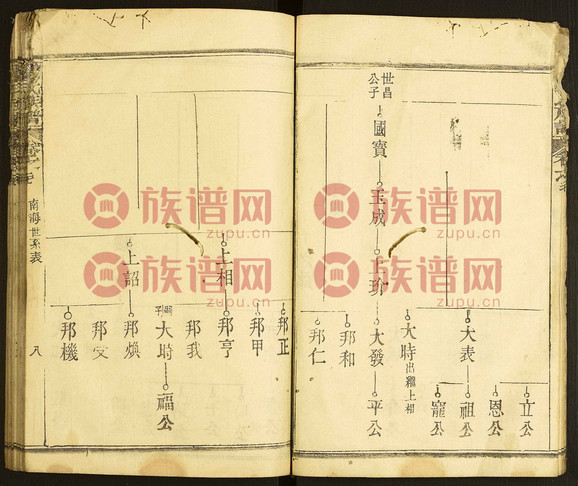 世昌
公子
國寶
玉成
上玠
大發
平公
立公
恩公
大表
祖公
寵公
大時出繼上相
邦和
邦仁
邦正
邦甲
上相
邦亨
邦我
大時
福公
上詔
邦煥
邦機
南海世系表
八
族谱网
zupu.cn
族谱网
zupu.cn
族谱网
zupu.cn
族谱网
zupu.cn
族谱网
zupu.cn
族谱网
zupu.cn